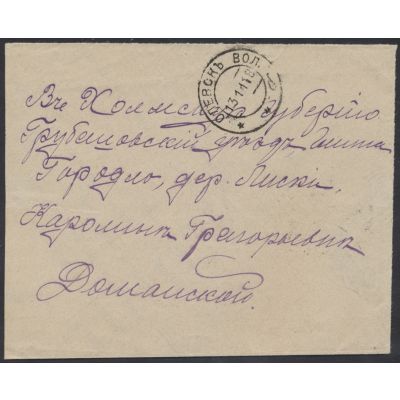 ОЛЕВСКЪ ВОЛ.
13 1 14 18
Въ Холмскую губернію
Грубешовскій уѣздъ, гмина
Городло, дер. Лиски,
Каролинѣ Григорьевнѣ
Доманской.